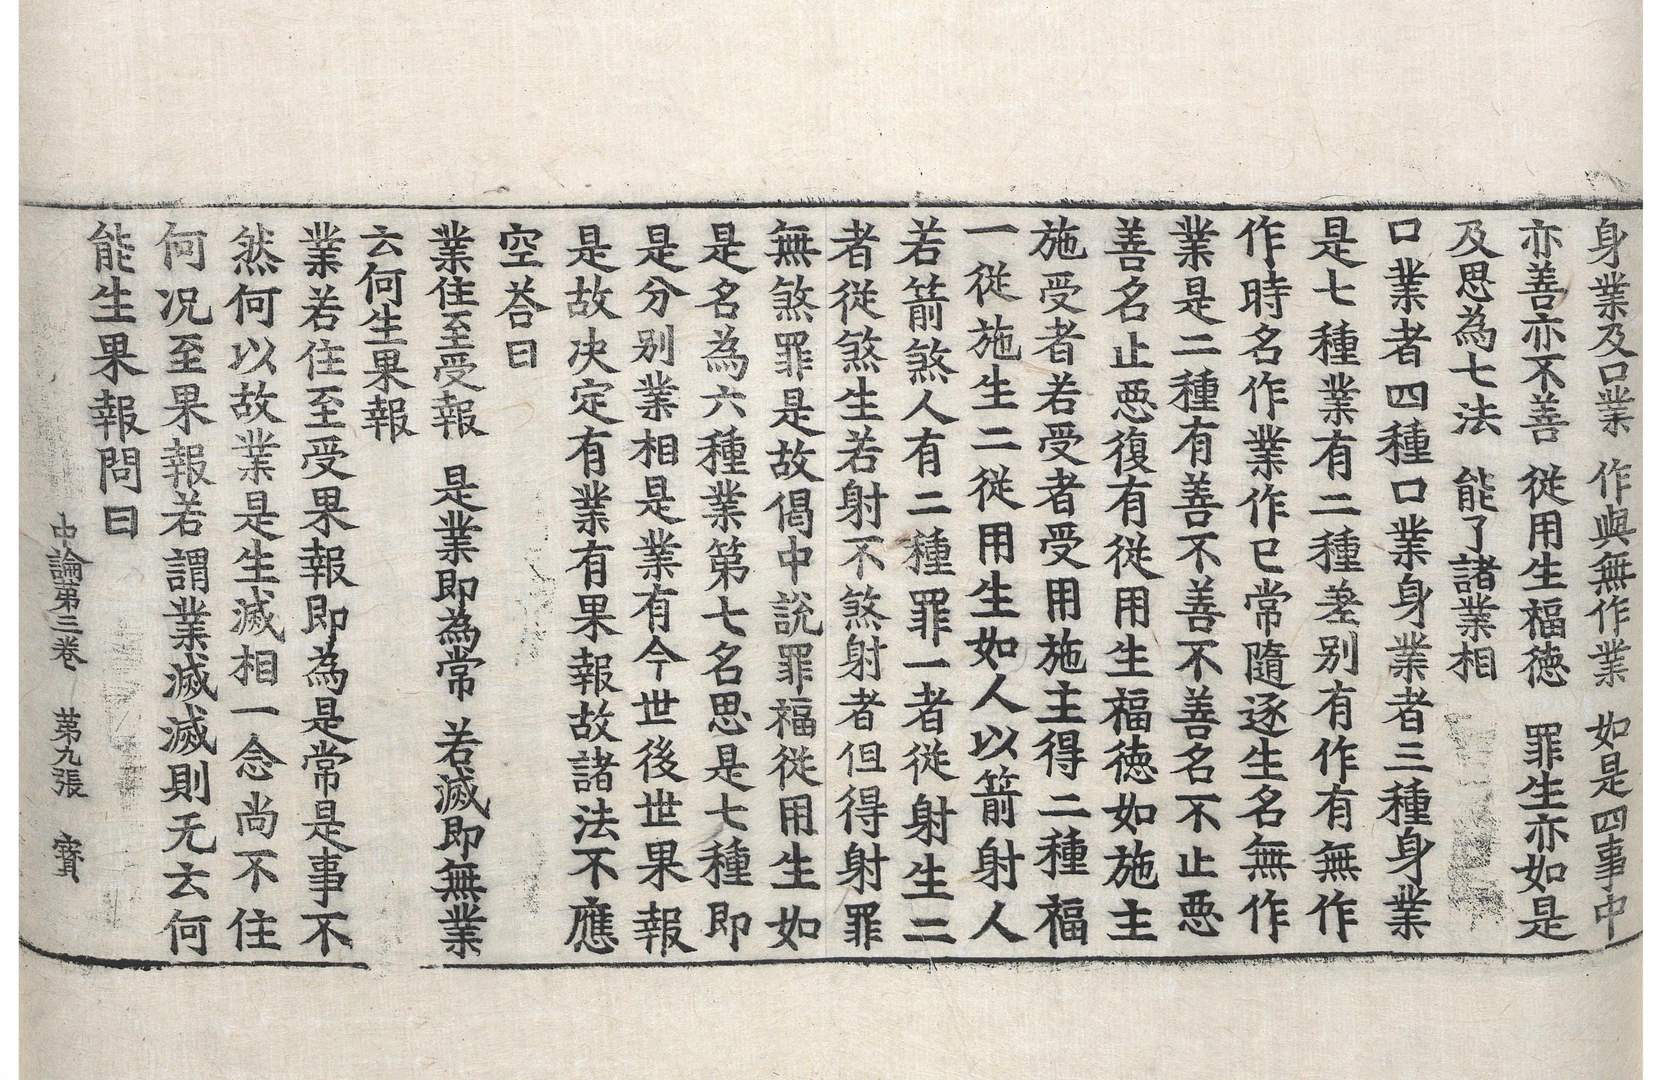 身業及口業　作與無作業　如是四事中
亦善亦不善　従用生福徳　罪生亦如是
及思為七法　能了諸業相
口業者四種口業身業者三種身業
是七種業有二種差別有作有無作
作時名作業作已常隨逐生名無作
業是二種有善不善不善名不止惡
善名止惡復有従用生福徳如施主
施受者若受者受用施主得二種福
一従施生二従用生如人以箭射人
若箭煞人有二種罪一者従射生二
者従煞生若射不煞射者但得射罪
無煞罪是故偈中說罪福従用生如
是名為六種業第七名思是七種即
是分別業相是業有今世後世果報
是故决定有業有果報故諸法不應
空荅曰
業住至受報　是業即為常　若滅即無業
云何生果報
業若住至受果報即為是常是事不
然何以故業是生滅相一念尚不住
何况至果報若謂業滅滅則无云何
能生果報問曰
中論第三卷　第九張　寳